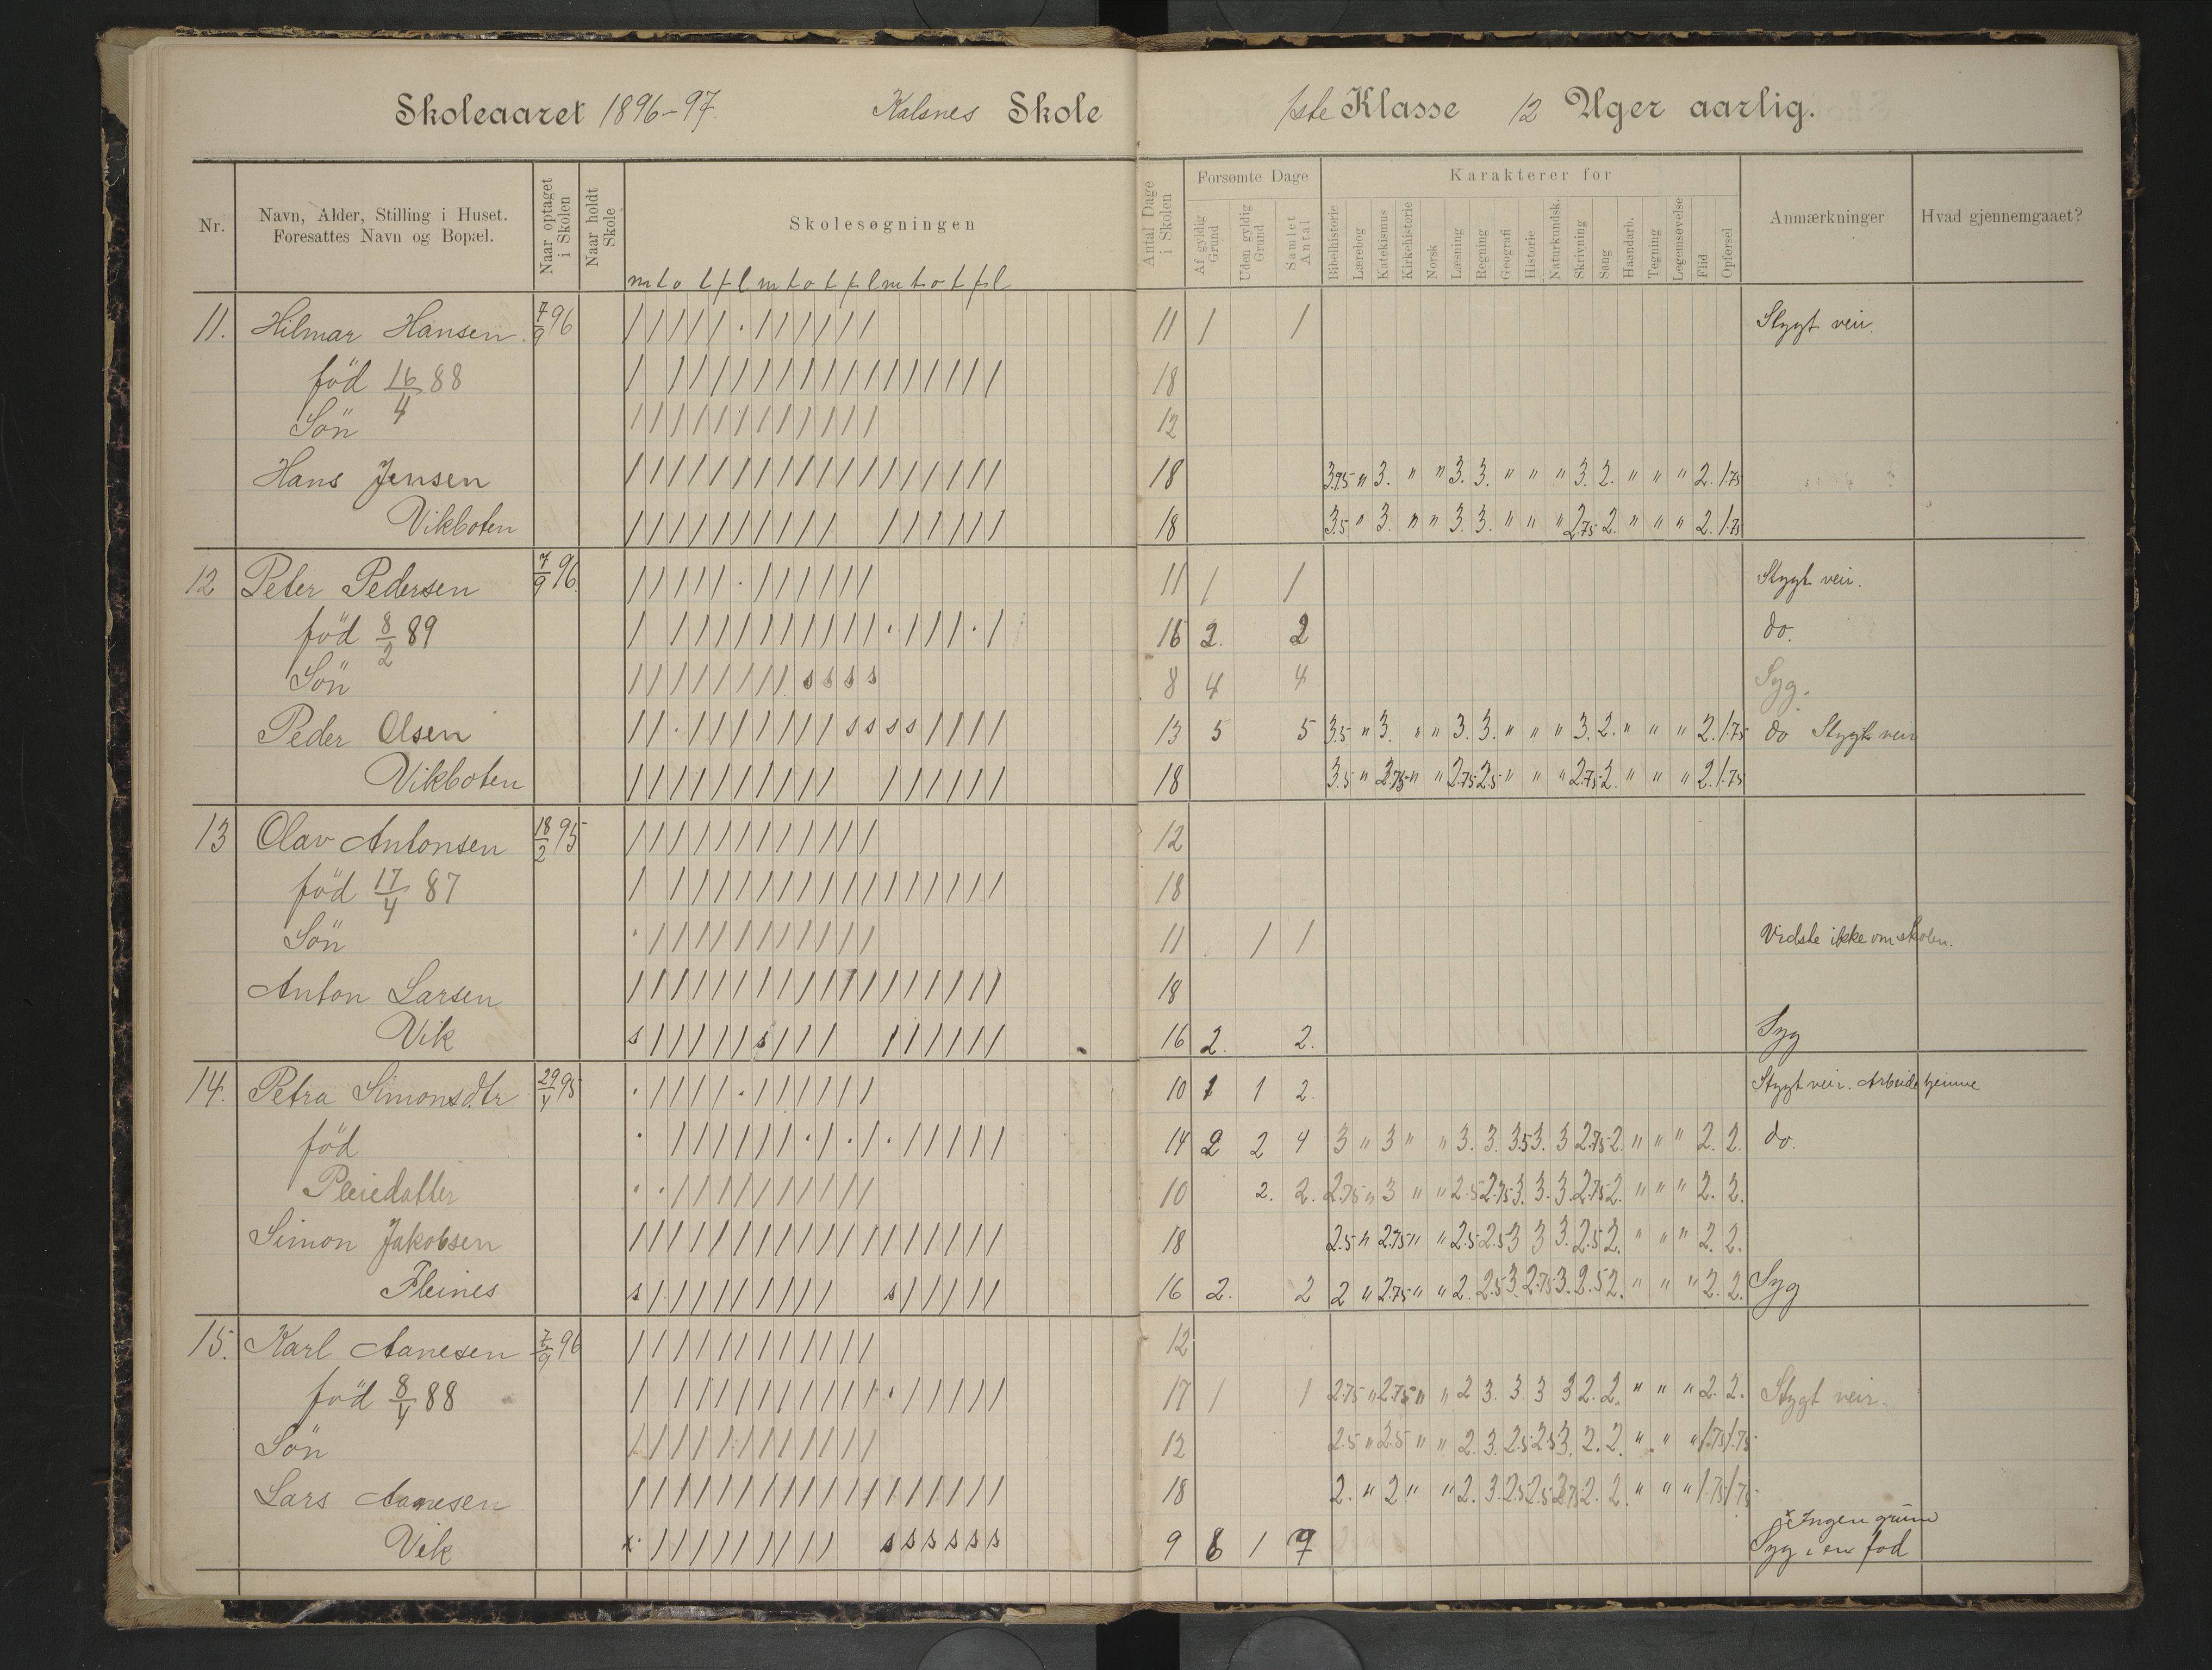 Skoleaaret 1896-97. Kalsnes Skole 1ste Klasse 12 Uger aarlig.
Nr. Navn, Alder, Stilling i Huset. Foresattes Navn og Bopæl. Naar optaget i Skolen Naar holdt Skole Skolesøgningen Antal Dage i Skolen Forsømte Dage Af gyldig Grund Uden gyldig Grund Samlet Antal Karakterer for Bibelhistorie Lærebog Katekismus Kirkehistorie Norsk Læsning Regning Geografi Historie Naturkundsk. Skrivning Sang Haandarb. Tegning Legemsøvelse Flid Opførsel Anmærkninger Hvad gjennemgaaet?
m t o t f l m t o t f l m t o t f l
11. Hilmar Hansen. 7/9 96 / / / / / . / / / / / / 11 1 1 Stygt veir.
föd 16/4 88 / / / / / / / / / / / / / / / / / 18
Sön / / / / / / / / / / / / 12
Hans Jensen / / / / / / / / / / / / / / / / / / 18 3.75 " 3. " " 3. 3. " " " 3. 2. " " " 2. 1.75
Vikboten / / / / / / / / / / / / / / / / 18 3.5 " 3. " " 3. 3. " " " 2.75 2. " " " 2. 1.75
12 Peter Pedersen 7/9 96. / / / / / . / / / / / / 11 1 1 Stygt veir.
föd 8/2 89 / / / / / / / / / / / . / / / . / 16 2. 2 do.
Sön / / / / / / / / s s s s 8 4 4 Syg.
Peder Olsen / / . / / / / / / / s s s s / / / / 13 5 5 3.5 " 3. " " 3. 3. " " " 3. 2. " " " 2. 1.75 do Stygt veir
Vikboten / / / / / / / / / / / / / / / / 18 3.5 " 2.75 " " 2.75 2.5 " " " 2.75 2. " " " 2. 1.75
13 Olav Antonsen 18/2 95 / / / / / / / / / / / / 12
föd 17/4 87 / / / / / / / / / / / / / / / / / 18
Sön . / / / / / / / / / / / 11 1 1 Vidste ikke om skolen.
Anton Larsen / / / / / / / / / / / / / / / / / / 18
Vik s / / / / / s / / / / / / / / / 16 2. 2. Syg
14. Petra Simonsdtr 29/4 95 . / / / / . / / / / / / 10 1 1 2. Stygt veir. Arbeide hjemme
föd . / / / / / / . / . / . / / / / / 14 2 2 4 3 " 3 " " 3. 3. 3.5 3. 3 2.75 2. " " " 2. 2. do.
Pleiedatter . . / / / / / / / / / / 10 2. 2. 2.75 " 3 " " 2.5 2.75 3. 3. 3. 2.75 2. " " " 2. 2.
Simon Jakobsen / / / / / / / / / / / / / / / / / / 18 2.5 " 2.75 " " 2.5 2.5 3 3 3. 2.5 2. " " " 2. 2.
Fleines s / / / / / / / / / s / / / / / 16 2. 2 2 " 2.75 " " 2. 2.5 3. 2.75 3. 2.5 2. " " " 2. 2. Syg
15. Karl Aanesen 7/9 96 / / / / / / / / / / / / 12
föd 8/4 88 / / / / / / / / / / / . / / / / / 17 1 1 2.75 " 2.75 " " 2 3. 3. 3 3 2. 2. " " " 2. 2. Stygt veir.
Sön / / / / / / / / / / / / 12 2.5 " 2.5 " " 2. 3. 2.5 2.5 3. 2. 2. " " " 1.75 1.75
Lars Aanesen / / / / / / / / / / / / / / / / / / 18 2. " 2 " " 2. 3. 2.5 2.5 2.75 2. 2. " " " 1.75 1.75
Vik x / / / / / / / / / s s s s s s 9 6 1 7 x Ingen grund
Syg i en fod